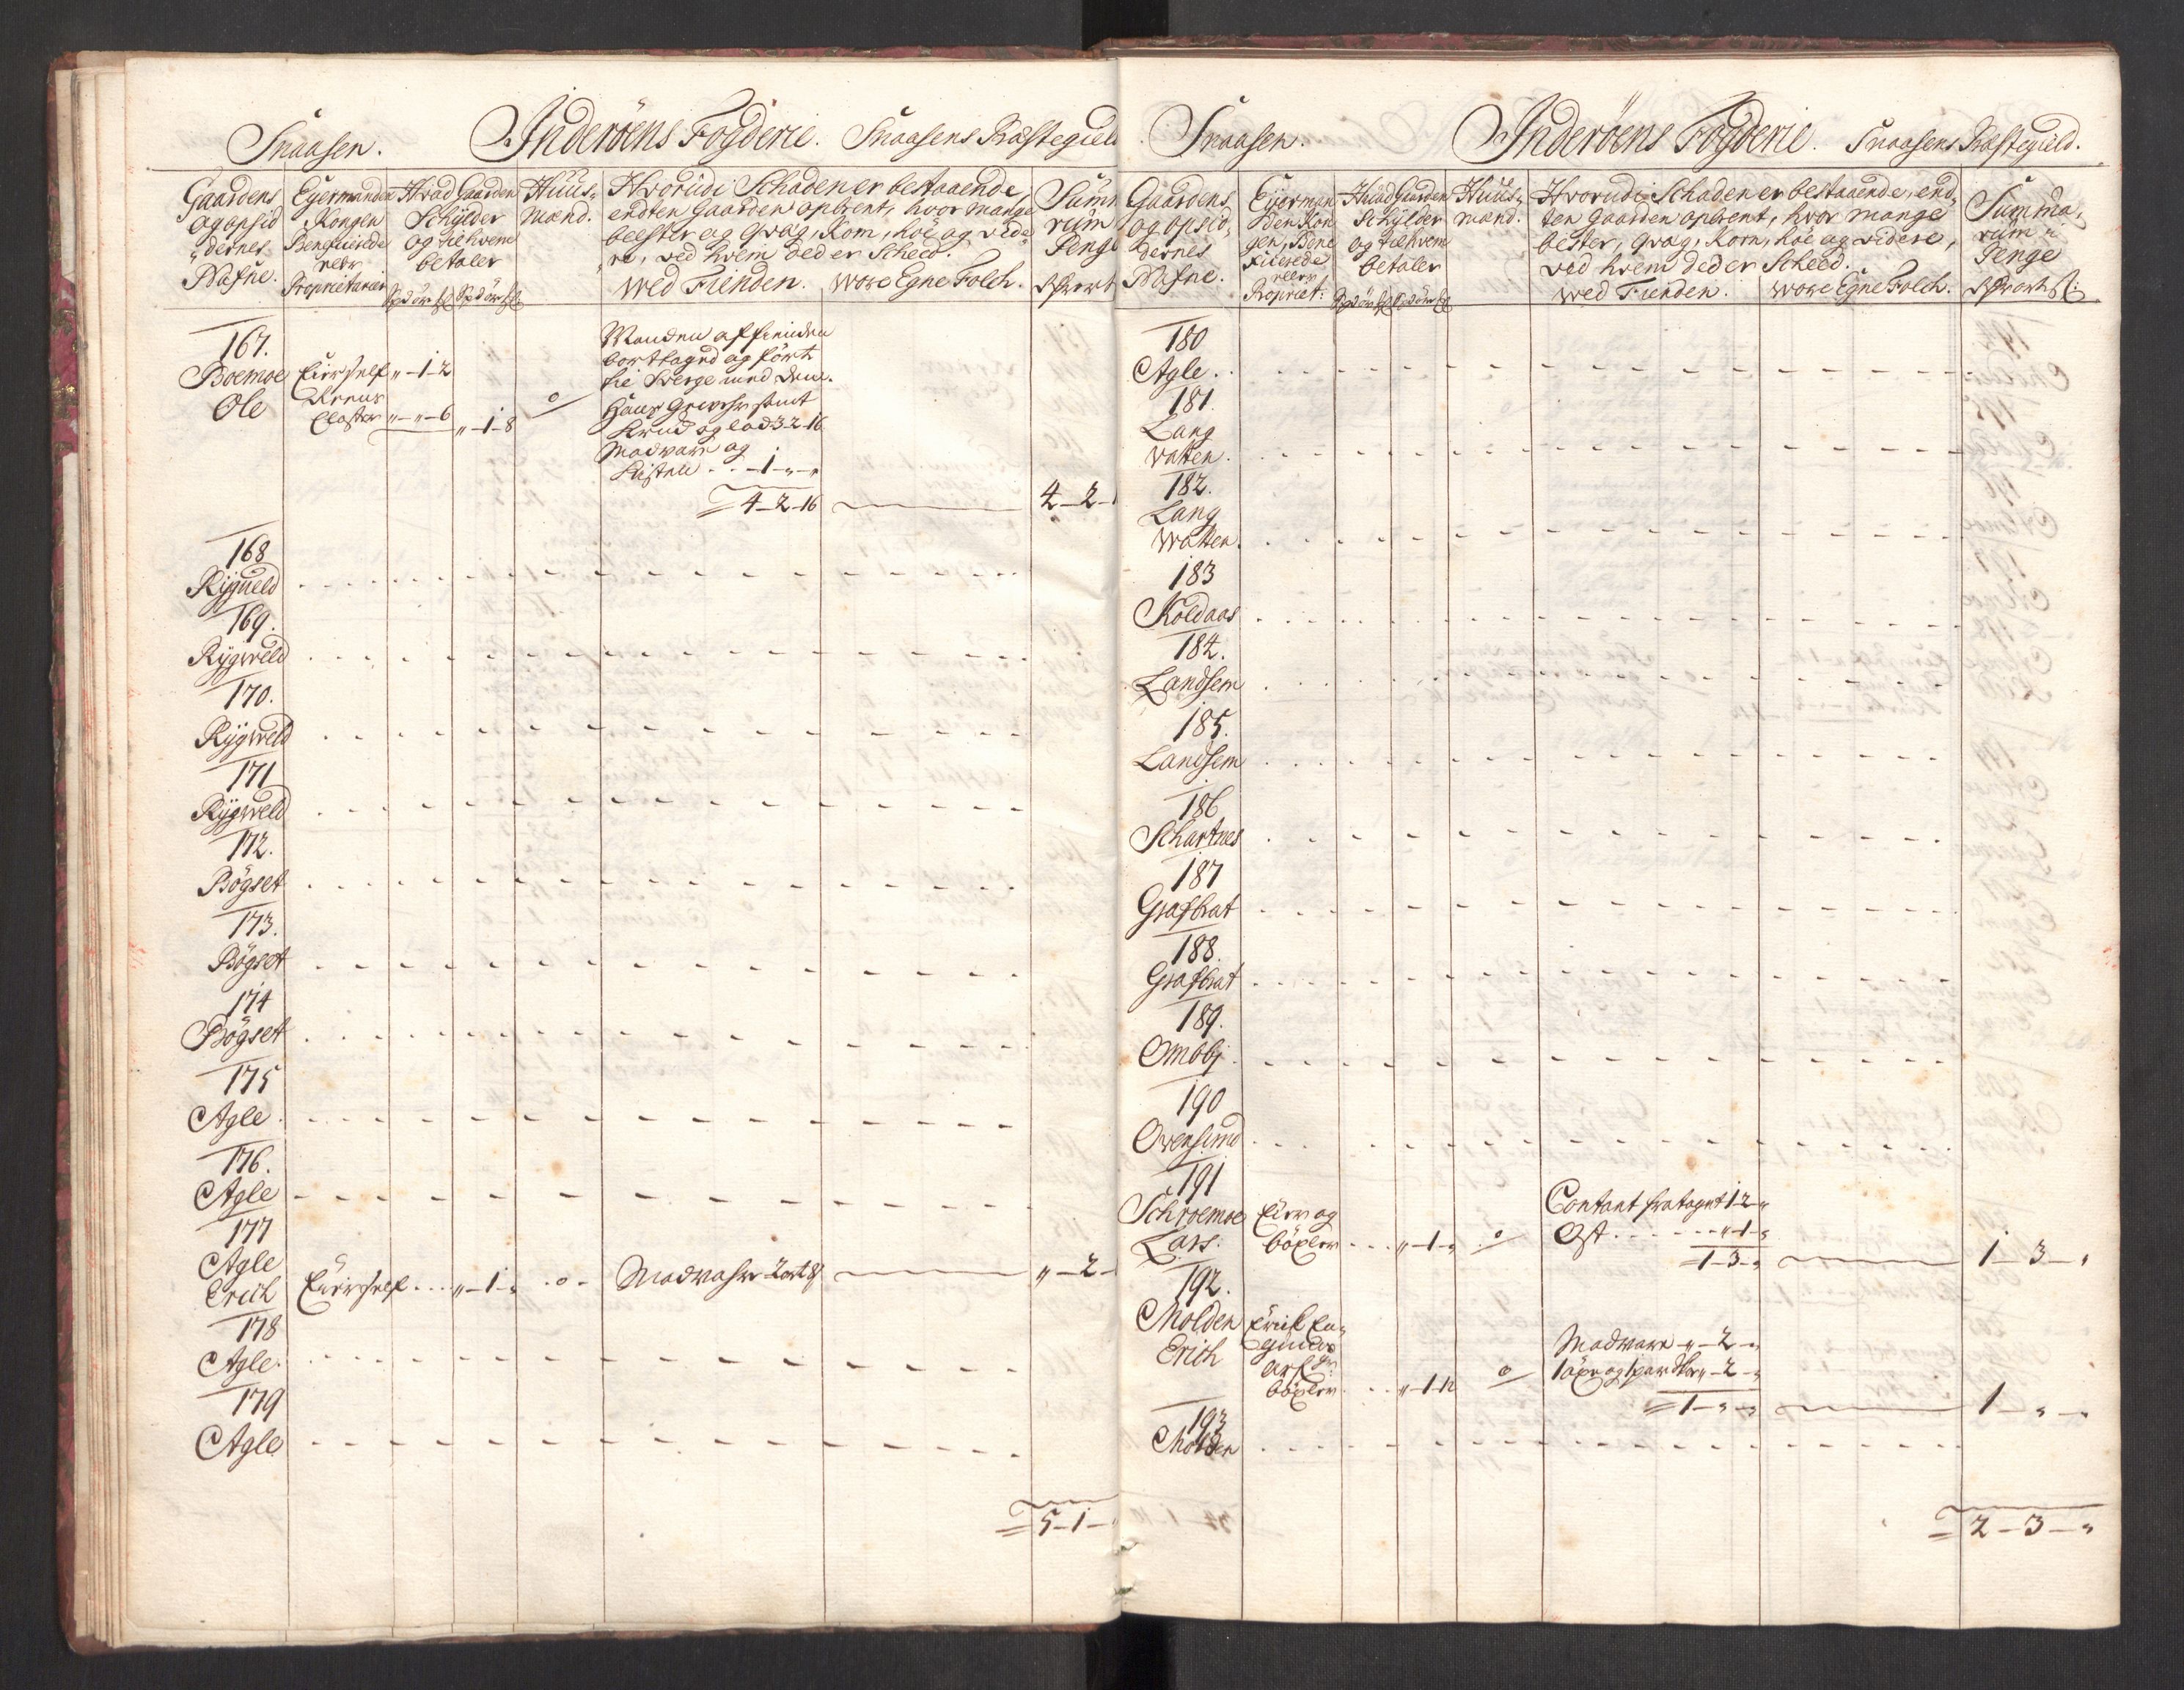 Snaasen. Inderöens Fogderie. Snaasens Præstegield
Gaardens og opsid dernes Nafne.
Egermanden Kongen Beneficerede eller Proprietarier
Hvad Gaarden Schÿlder og til hvem betaler
Huus- mænd.
Hvorudi Schaden er bestaaende,
endten Gaarden opbrent, hvor mange
beester og qvæg, Korn, höe og vide-
re, ved hvem ded er Scheed.
wed Fienden. wore Egne Folch.
Summa rum Penge
167.
Boemoe Ole
Eier self „-1-2
Closter „-„-6 „-1-8
o
Manden af fienden
borttaged og fört
til Sverge med dem.
Hans Gewehr samt
Krud og lod 3-2-16
Madvare og
Kistell - - 1-„-„
4-2-16
4-2-1
168
Rÿgveld
169.
Rÿgweld
170.
Rÿgweld
171
Rÿgweld
172.
Bögset
173.
Bögset
174
Bögset
175
Agle.
176.
Agle
177
Agle
Erich Eier self . . . „-1-„ . o - Madvahre 2 ort „-2-
178
Agle.
179
Agle
5-1-
Snaasen. Inderöens Fogderie. Snaasens Præstegield.
Gaardens og opsid- dernes Nafne.
Eÿerman den Kon gen, Bene ficerede ellerRopriet:
Hvad Gaarden Schÿlder og til hvem betaler
Huus- mænd.
Hvorudi Schaden er bestaaende, end-
ten Gaarden opbrent, hvor mange
bester, qvæg, Korn, höe og videre,
ved hvem ded er Scheed.
wed Fienden. wore Egne Folch.
Summa- rum i Penge
180
Agle.
181.
Lang
vatten.
182.
Lang
Watten.
183
Koldaas
184.
Landsem
185.
Landsem
186
Schartnes
187
Grafbrat
188.
Grafbrat
189.
Ombbÿ
190
Ovensund
191
Schroemoe Eier og Contant fratagnt 1-2-„
Lars: böxler . . . „-1-„ o Ost . . . . „-1-„
1-3-„ 1-3-„
192.
Molden Erich
böxler . . „-1-12 o
Madvare „-2-„
1 öxe og 1 par „-2-„
1-„-„ 1-„-„
193
Molden
2-3-„